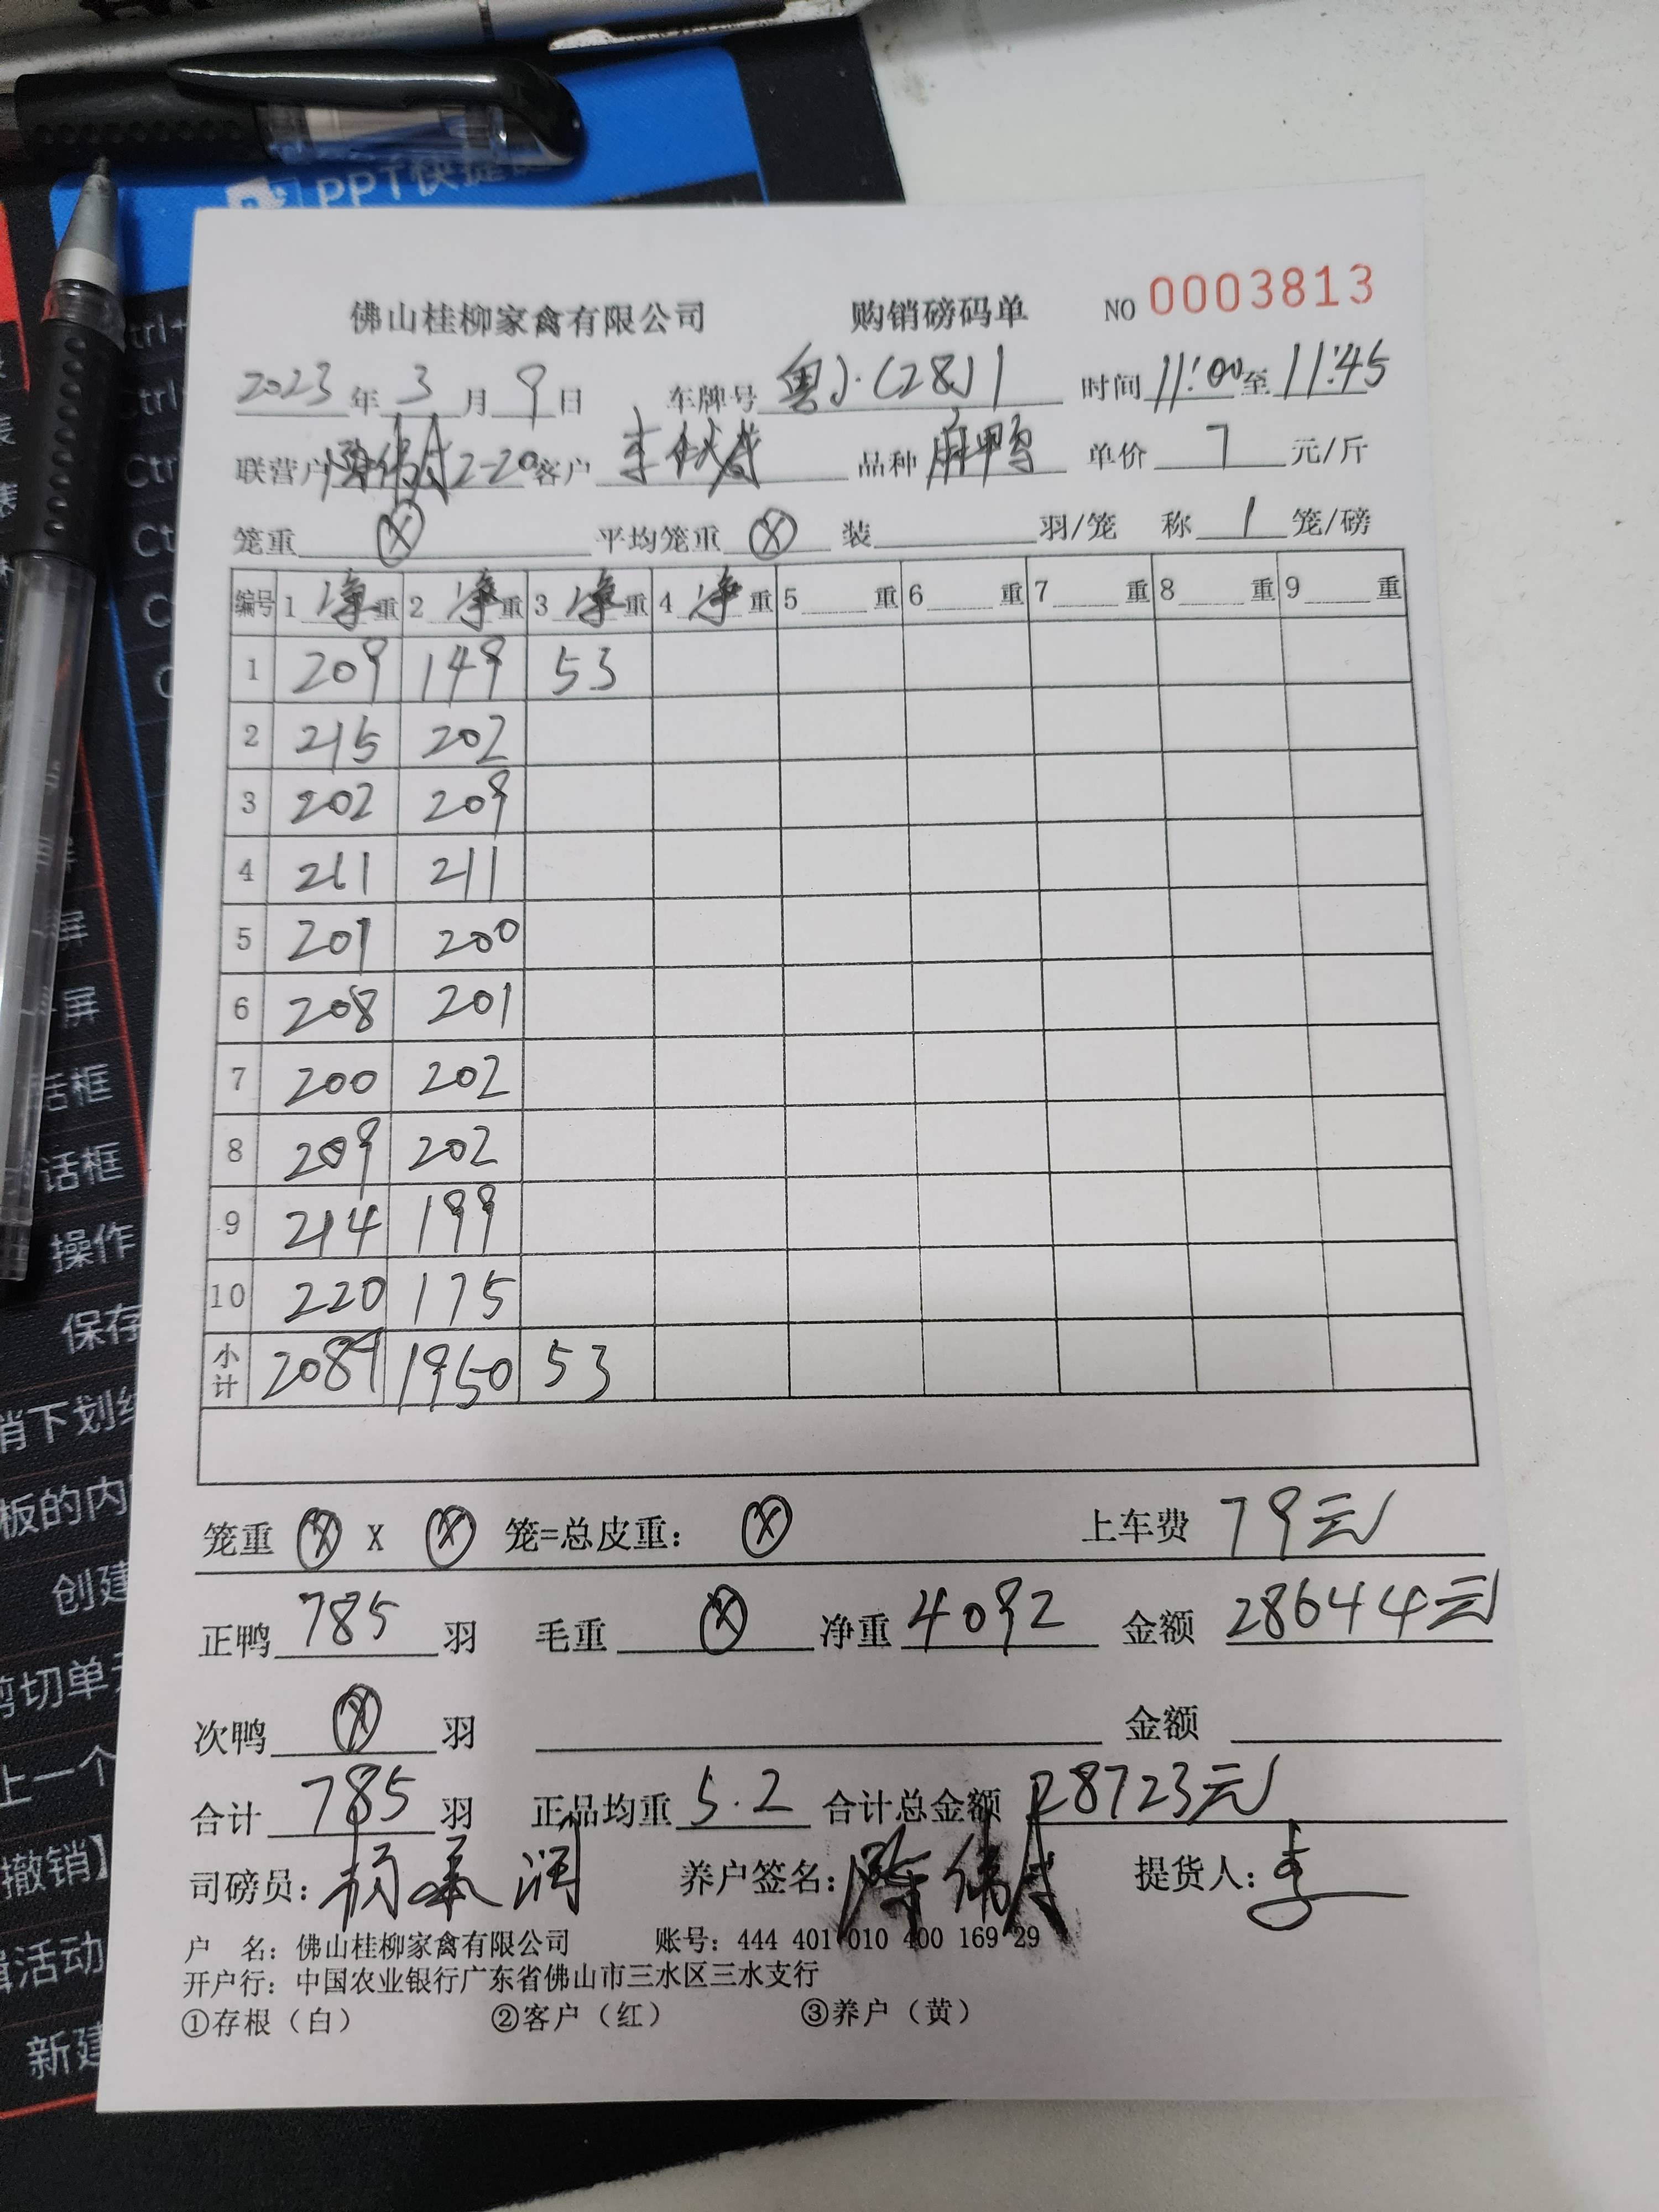 PPT快捷
佛山桂柳家禽有限公司 购销磅码单 NO 0003813
2023年3月9日 车牌号 粤J·(28)1 时间 11:00至11:45
联营户 陈伟成2-20 客户 李 品种 麻鸭 单价 7 元/斤
笼重 ⓧ 平均笼重 ⓧ 装 羽/笼 称 1 笼/磅
编号 1 净重 2 净重 3 净重 4 净重 5 重 6 重 7 重 8 重 9 重
1 209 149 53
2 215 202
3 202 209
4 211 211
5 201 200
6 208 201
7 200 202
8 209 202
9 214 199
10 220 175
小计 2089 1950 53
笼重 ⓧ X ⓧ 笼=总皮重: ⓧ 上车费 79元
正鸭 785 羽 毛重 ⓧ 净重 4092 金额 28644元
次鸭 ⓧ 羽 金额
合计 785 羽 正品均重 5.2 合计总金额 28723元
司磅员: 杨 润 养户签名: 陈伟成 提货人: 李
户 名: 佛山桂柳家禽有限公司 账号: 444 401 010 400 169 29
开户行: 中国农业银行广东省佛山市三水区三水支行
①存根（白） ②客户（红） ③养户（黄）
话框
操作
保存
消下划
板的内
创建
剪切单
上一个
撤销】
辑活动
新建